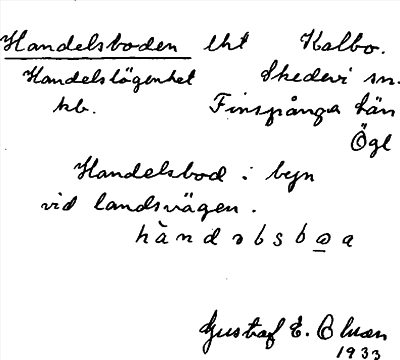 Handelsboden lht Kalbo.
Handelslägenhet Skedevi sn.
kb. Finspånga län
Ögl
Handelsbod i byn
vid landsvägen.
hàndəbsboa
Gustaf E. Olsson
1933